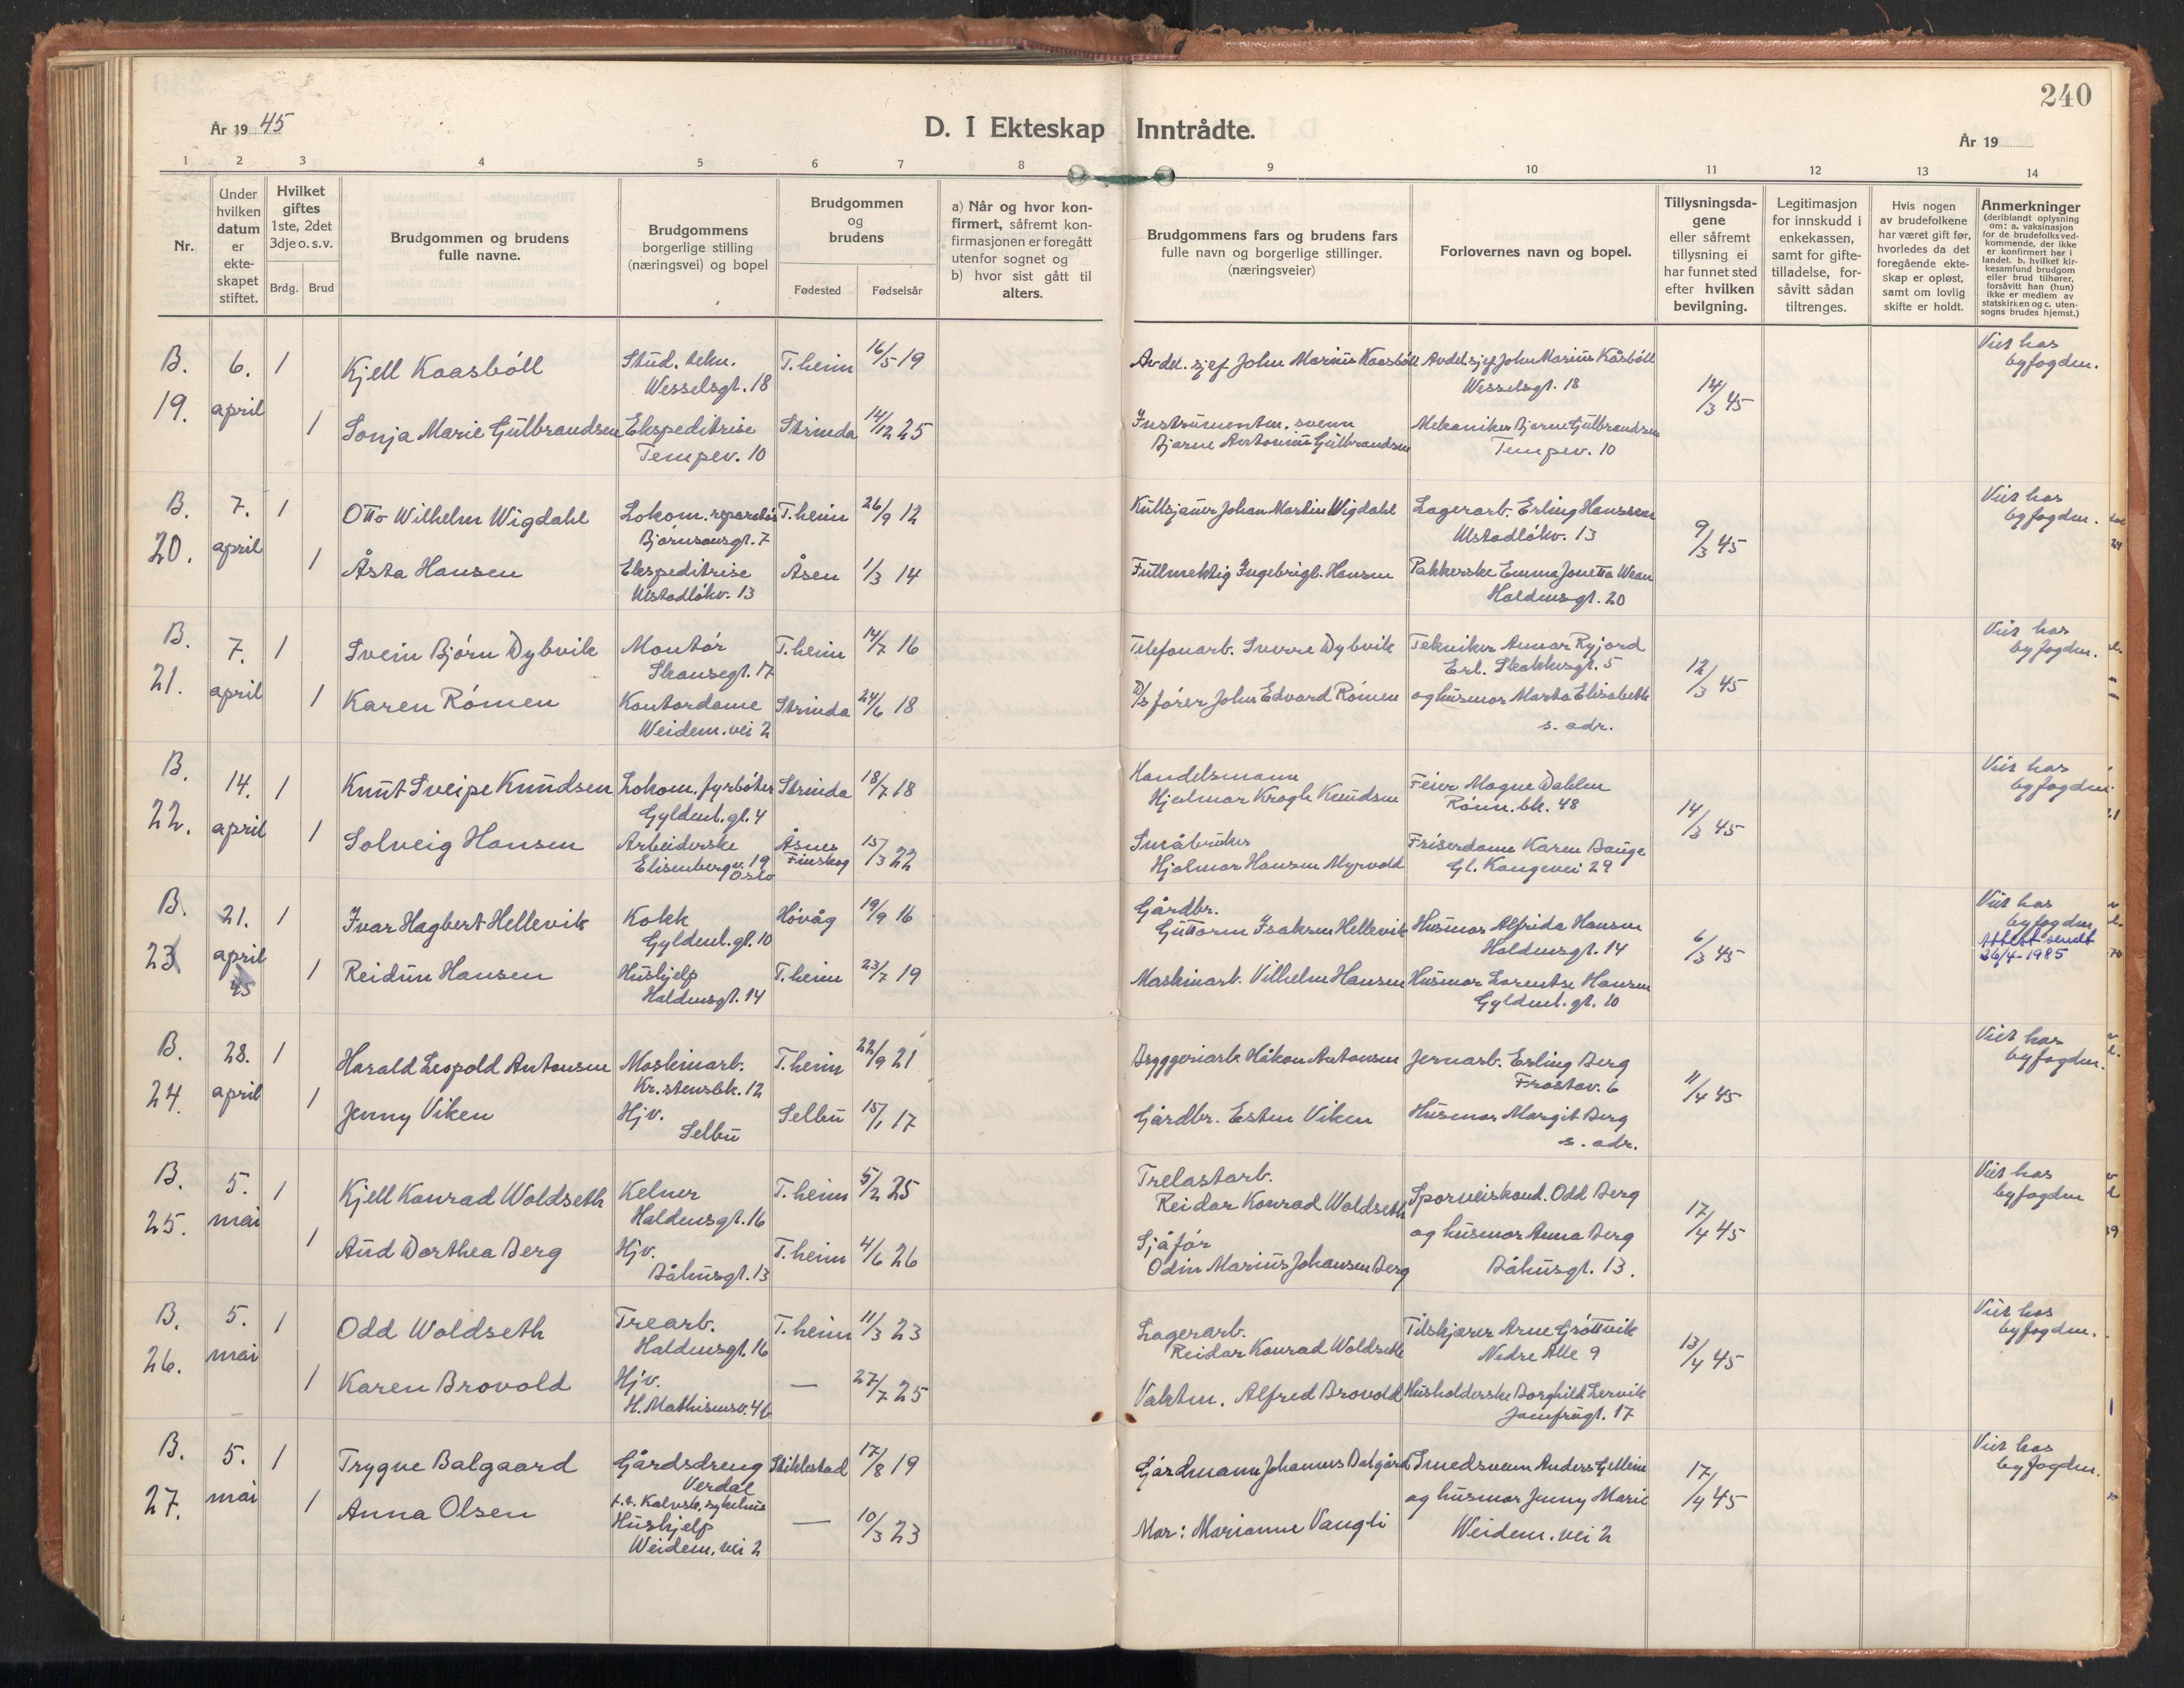 240
År 19 45
D. I Ekteskap Inntrådte.
År 19
1 2 3 4 5 6 7 8 9 10 11 12 13 14
Nr.
Under hvilken datum er ekteskapet stiftet.
Hvilket giftes 1ste, 2det 3dje o. s. v.
Brdg. Brud
Brudgommen og brudens fulle navne.
Brudgommens borgerlige stilling (næringsvei) og bopel
Brudgommen og brudens
Fødested Fødselsår
a) Når og hvor konfirmert, såfremt konfirmasjonen er foregått utenfor sognet og b) hvor sist gått til alters.
Brudgommens fars og brudens fars fulle navn og borgerlige stillinger. (næringsveier)
Forlovernes navn og bopel.
Tillysningsdagene eller såfremt tillysning ei har funnet sted efter hvilken bevilgning.
Legitimasjon for innskudd i enkekassen, samt for giftetilladelse, forsåvitt sådan tiltrenges.
Hvis nogen av brudefolkene har været gift før, hvorledes da det foregående ekteskap er opløst, samt om lovlig skifte er holdt.
Anmerkninger (deriblandt oplysning om: a. vaksinasjon for de brudefolks vedkommende, der ikke er konfirmert her i landet. b. hvilket kirkesamfund brudgom eller brud tilhører, forsåvitt han (hun) ikke er medlem av statskirken og c. utensogns brudes hjemst.)
B. 19. 6. april 1 Kjell Kaasbøll Stud. tekn. Wesselsgt. 18 T.heim 16/5 19 Avdel. sjef John Marius Kaasbøll Avdel.sjef John Marius Kåsbøll Wesselsgt. 18 14/3 45 Viet hos byfogden.
1 Sonja Marie Gulbrandsen Ekspeditrise Tempev. 10 Strinda 14/12 25 Instrumentm. svenn Bjarne Antonius Gulbrandsen Mekaniker Bjarne Gulbrandsen Tempev. 10
B. 20. 7. april 1 Otto Wilhelm Wigdahl Lokom. reparatør Bjørnsonsgt. 7 T.heim 26/9 12 Kullsjauer Johan Martin Wigdahl Lagerarb. Erling Hanssen Ulstadløkv. 13 9/3 45 Viet hos byfogden.
1 Åsta Hansen Ekspeditrise Ulstadløkv. 13 Åsen 1/3 14 Fullmektig Ingebrigt. Hansen Pakkerske Emma Jonetta Waan Haldensgt. 20
B. 21. 7. april 1 Svein Bjørn Dybvik Montør Skansegt. 17 T.heim 14/7 16 Telefonarb. Sverre Dybvik Tekniker Annar Ryjord Erl. Skakkesgt. 5 12/3 45 Viet hos byfogden.
1 Karen Rømen Kontordame Weidem. vei 2 Strinda 24/6 18 D/s fører John Edvard Rømen og husmor Marta Elisabeth s. adr.
B. 22. 14. april 1 Knut Sveipe Knudsen Lokom. fyrbøter Gyldenl. gt. 4 Strinda 18/7 18 Handelsmann Hjalmar Krogh Knudsen Feier Magne Dahlen Rønn. bk. 48 14/3 45 Viet hos byfogden
1 Solveig Hansen Arbeiderske Elisenbergv. 19 Oslo Åsnes Finskog 15/3 22 Småbruker Hjalmar Hansen Myrvold Frisørdame Karen Bauge Gl. Kongevei 29
B. 23 21. april 45 1 Ivar Hagbert Hellevik Kokk Gyldenl. gt. 10 Høvåg 19/9 16 Gårdbr. Guttorm Isaksen Hellevik Husmor Alfrida Hansen Haldensgt. 14 6/3 45 Viet hos byfogden Attest sendt 26/4-1985
1 Reidun Hansen Hushjelp Haldensgt. 14 T.heim 23/7 19 Maskinarb. Vilhelm Hansen Husmor Lorentse Hansen Gyldenl. gt. 10
B. 24. 28. april 1 Harald Leopold Antonsen Maskinarb. Kr.stensbk. 12 T.heim 22/9 21 Bryggeriarb. Håkon Antonsen Jernarb. Erling Berg Frostav. 6 11/4 45 Viet hos byfogden.
1 Jenny Viken Hjv. Selbu Selbu 15/1 17 Gårdbr. Esten Viken Husmor Margit Berg s. adr.
B. 25. 5. mai 1 Kjell Konrad Woldseth Kelner Haldensgt. 16 T.heim 5/2 25 Trelastarb. Reidar Konrad Woldseth Sporveiskond. Odd Berg 17/4 45 Viet hos byfogden
1 Aud Dorthea Berg Hjv. Båhusgt. 13 T.heim 4/6 26 Sjåfør Odin Marius Johansen Berg og husmor Anna Berg Båhusgt. 13.
B. 26. 5. mai 1 Odd Woldseth Trearb. Haldensgt. 16 T.heim 11/3 23 Lagerarb. Reidar Konrad Woldseth Tilskjærer Arne Grøttvik Nedre Alle 9 13/4 45 Viet hos byfogden.
1 Karen Brovold Hjv. H. Mathisensv. 4b — 27/7 25 Vaktm. Alfred Brovold Husholderske Borghild Lervik Jomfrugt. 17
B. 27. 5. mai 1 Trygve Balgaard Gårdsdreng Verdal Stiklestad 17/8 19 Gårdmann Johannes Balgård Smedsvenn Anders Gjellein 17/4 45 Viet hos byfogden.
1 Anna Olsen Hushjelp Weidem. vei 2 — 10/3 23 Mor: Marianne Vangli og husmor Jenny Marie Weidem. vei 2